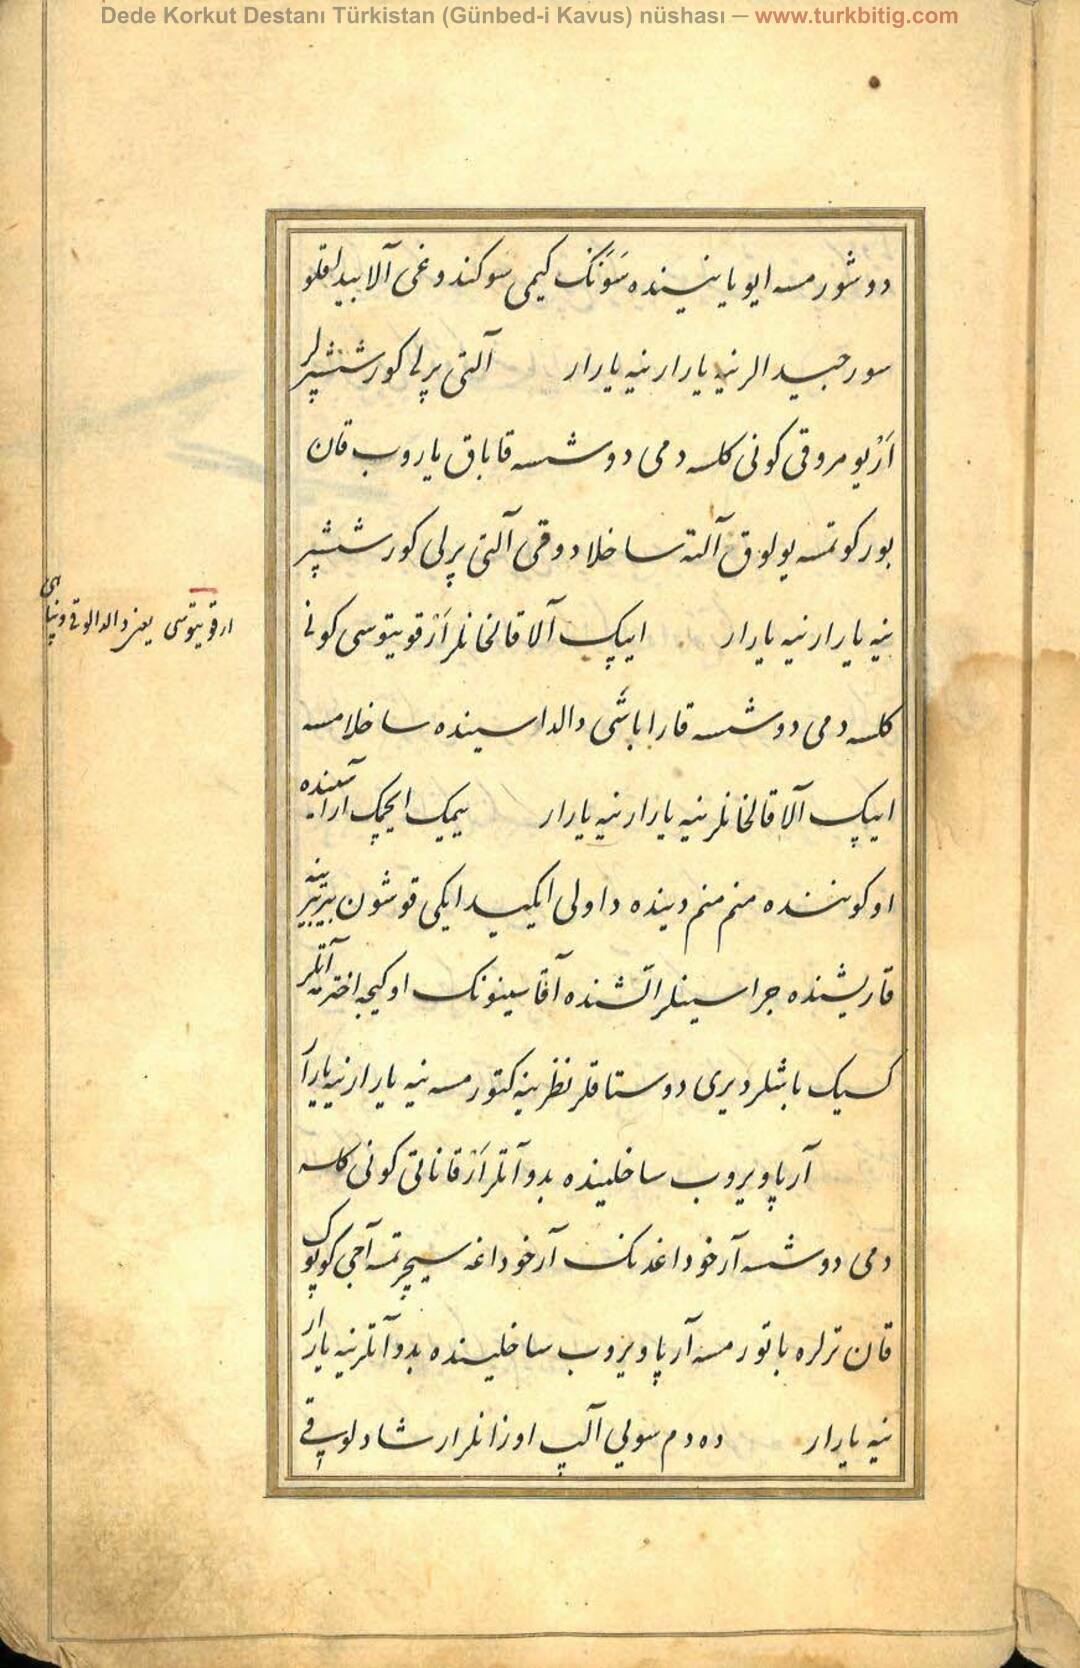 Dede Korkut Destanı Türkistan (Günbed-i Kavus) nüshası — www.turkbitig.com
دوشورمسه ایو یانینده سَوَنک کیمی سوکندوغی آلا بیداقلو
سور جیدالر نیه یارار نیه یارار آلتی پرلی کور ششپرلر
اَرْیومروقی کونی کلسه دمی دوشسه قاباق یاروب قان
بورکوتمسه یولوق آلته ساخلادوقی آلتی پرلی کور ششپر
نیه یارار نیه یارار ایپک آلا قالخانلر اَرْقویتوسی کونی
ارقویتوسی یعنی دالدالوقی
کلسه دمی دوشسه قارا باشی دالداسینده ساخلامسه
ایپک آلا قالخانلر نیه یارار نیه یارار یمیک ایچمک آراسینده
اوکوننده منم منم دینده داولی ایکید ایکی قوشون بیربیرینه
قاریشنده جراسینلر آتشنده آقاسینونک اوکیجه اختریه آتلر
کسیک باشلر دیری دوستاقلر نظرینه کتورمسه نیه یارار نیه یارار
آرپا ویروب ساخلینده بدو آتلر اَرْقاناتی کونی کلسه
دمی دوشسه آرخوداغدنک آرخوداغه سیچرتمه آجی کوپوک
قان ترلره باتورمسه آرپا ویروب ساخلینده بدو آتلر نیه یارار
نیه یارار ده دم سولی آلپ اوزانلر ارشادلوب